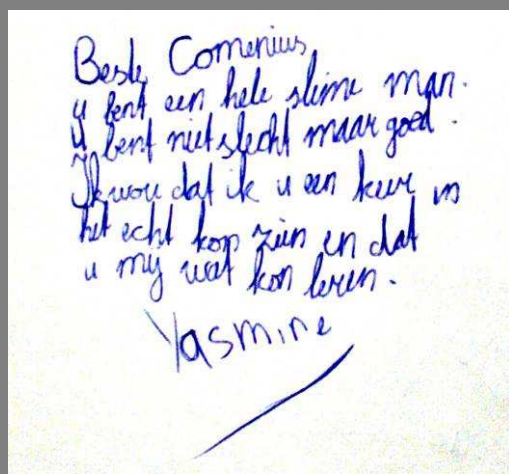 Beste Comenius
u bent een hele slime man.
U bent niet slecht maar goed.
Ik wou dat ik u een keer in
het echt kon zien en dat
u mij wat kon leren.
Yasmine